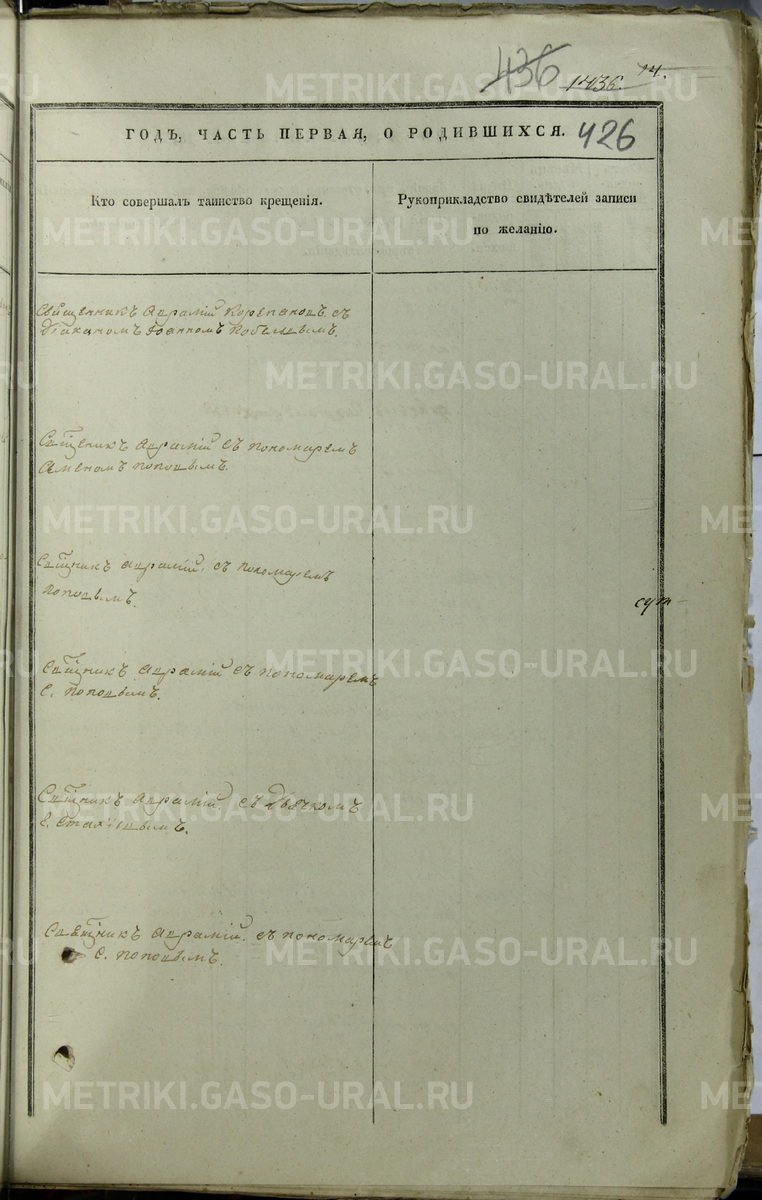 436
1436.
14.
ГОДЪ, ЧАСТЬ ПЕРВАЯ, О РОДИВШИХСЯ.
426
Кто совершалъ таинство крещенія.
Рукоприкладство свидѣтелей записи
по желанію.
Священникъ Аврамій Корепановъ съ
діакономъ Іоанномъ
Свщеникъ Аврамій съ пономаремъ
Поповымъ.
Свщникъ Аврамій съ пономаремъ
Поповымъ.
Свщникъ Аврамій съ пономаремъ
С. Поповымъ.
Свщникъ Аврамій съ Дьячкомъ
С.
Свщникъ Аврамій съ пономаремъ
С. Поповымъ.
METRIKI.GASO-URAL.RU